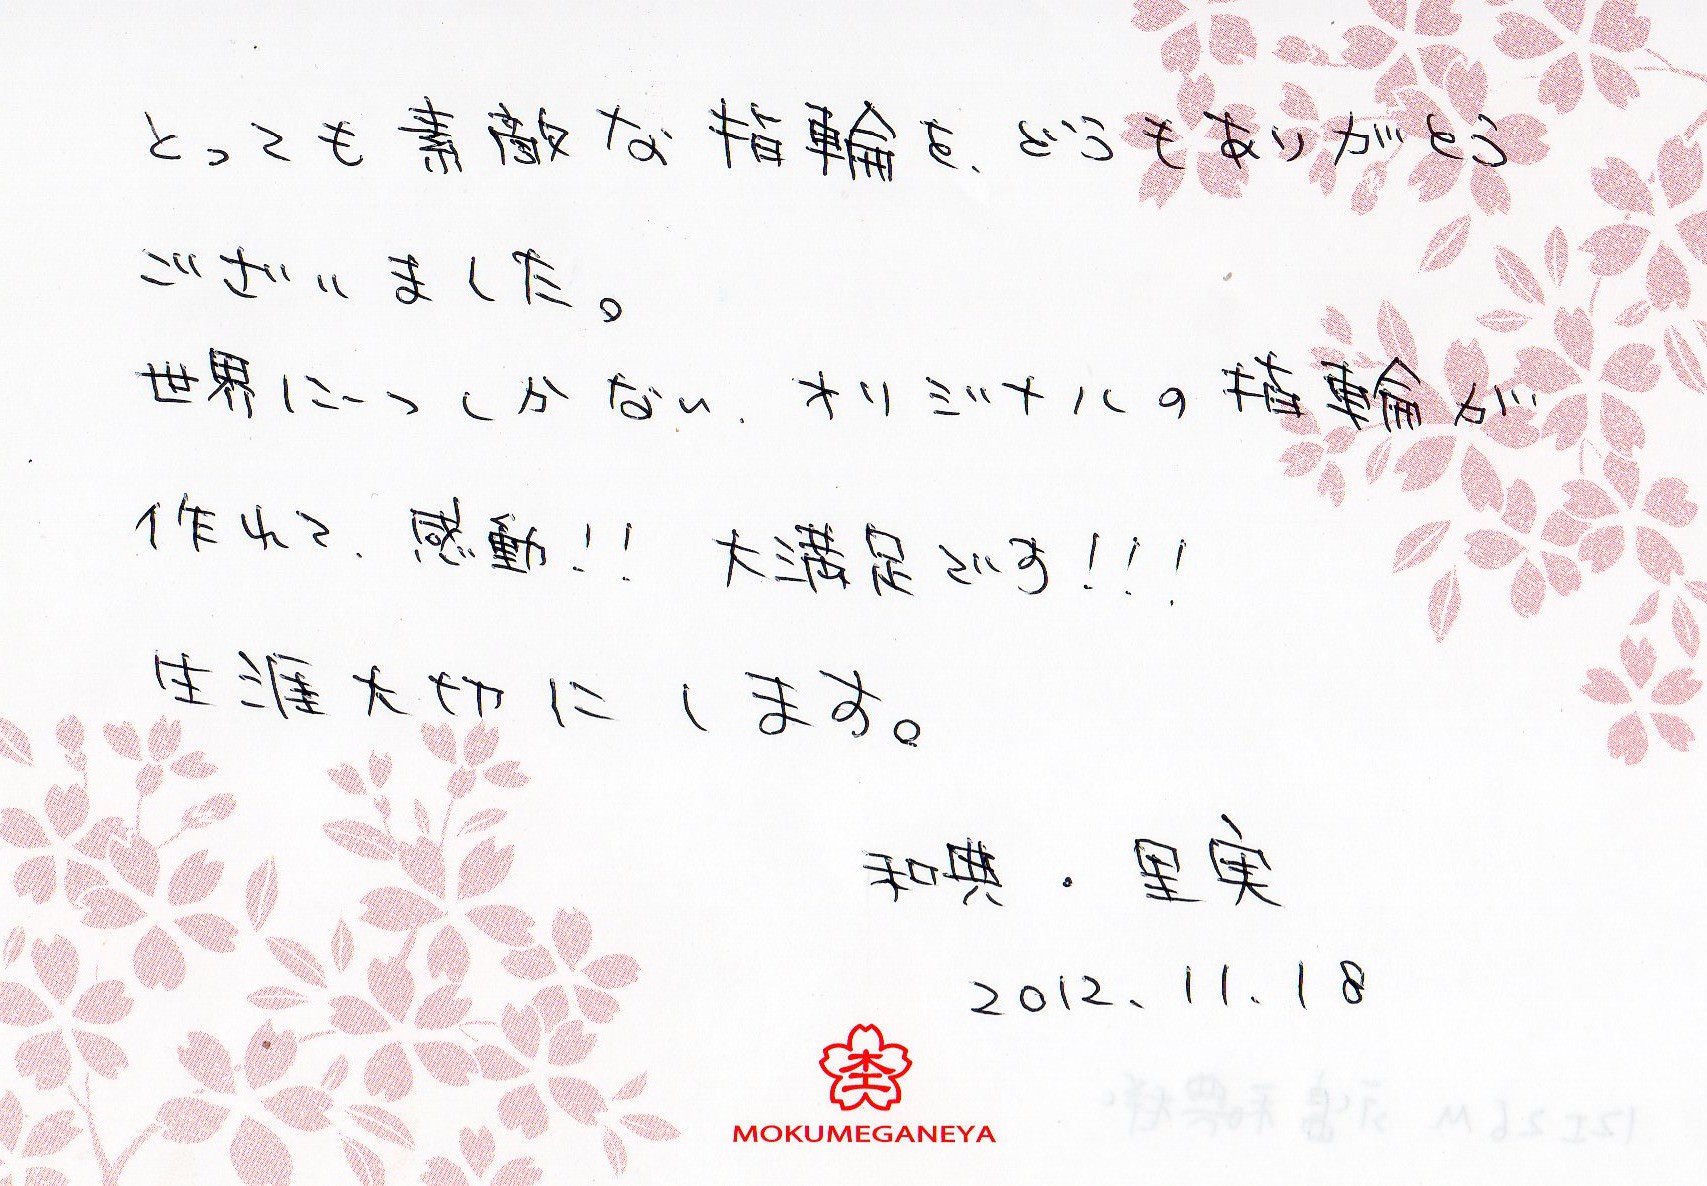 とっても素敵な指輪を、どうもありがとう
ございました。
世界に一つしかない、オリジナルの指輪が
作れて、感動!! 大満足です!!!
生涯大切にします。
和典・里実
2012.11.18
MOKUMEGANEYA